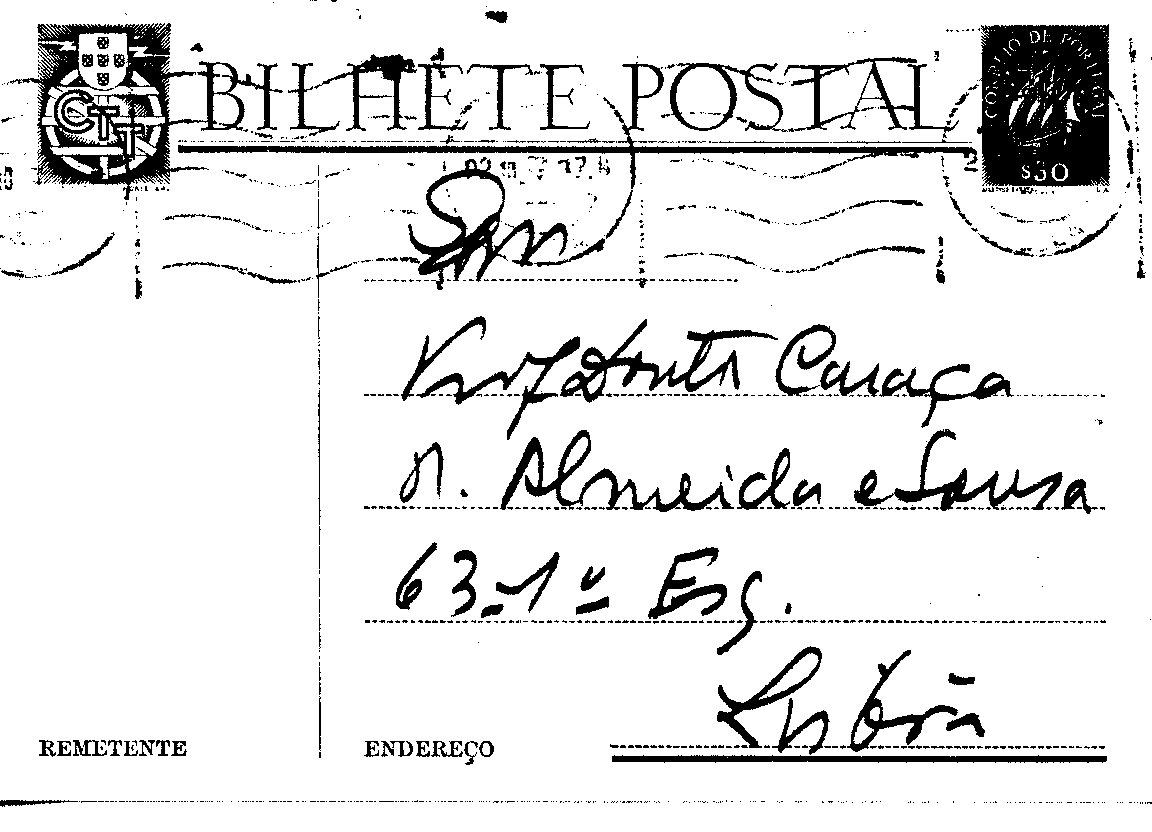 CTT BILHETE POSTAL
CORREIO DE PORTUGAL
$30
Snr
Prof Doutor Caraça
R. Almeida e Sousa
63-1º Esq.
Lisboa
REMETENTE
ENDEREÇO